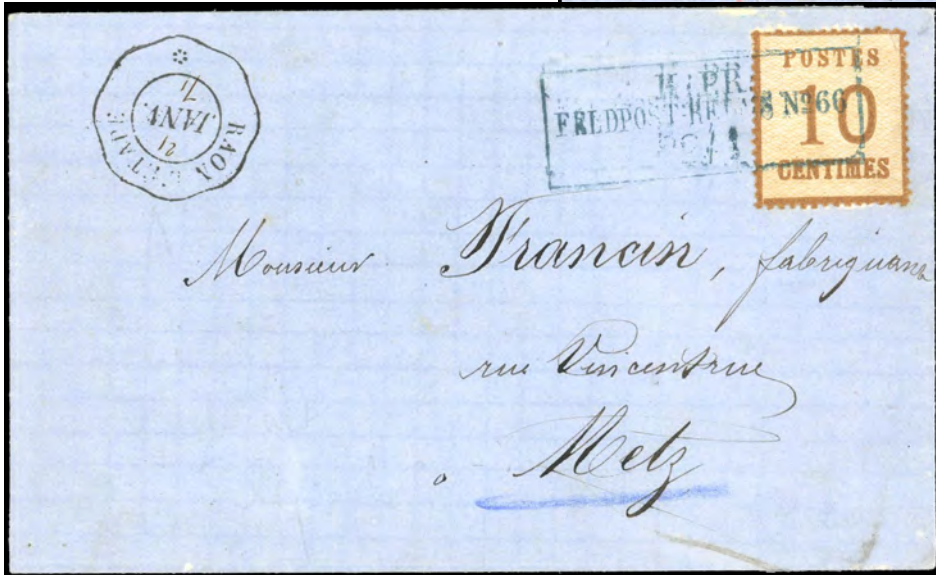 RAON L'ÉTAPE
21
JANV.
71
K:PR
FELDPOST-RELAIS Nº66
POSTES
10
CENTIMES
Monsieur Francin, fabriquant
rue Vincentrue
Metz